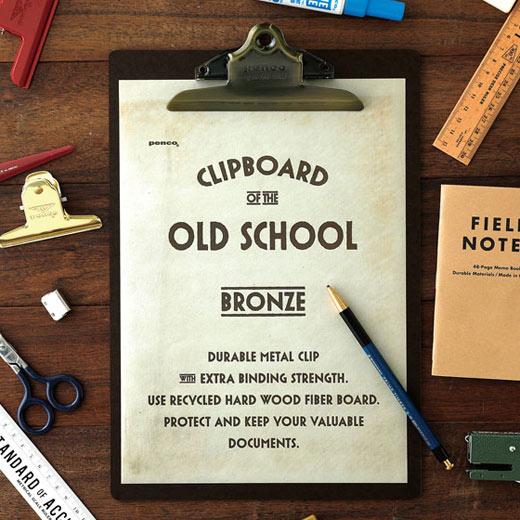 penco
penco
CLIPBOARD
OF THE
OLD SCHOOL
BRONZE
DURABLE METAL CLIP
WITH EXTRA BINDING STRENGTH.
USE RECYCLED HARD WOOD FIBER BOARD.
PROTECT AND KEEP YOUR VALUABLE
DOCUMENTS.
FIEL
NOTE
48-Page Memo Boo
Durable Materials / Made in
STANDARD OF ACC